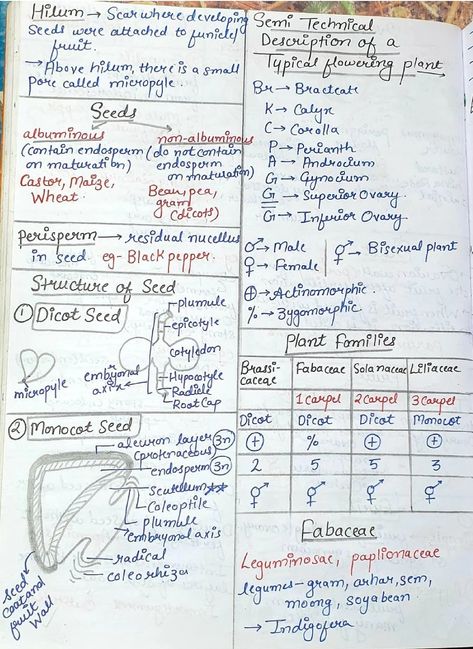 Hilum → Scar where developing
Seeds were attached to funicle/
fruit.
→ Above hilum, there is a small
pore called micropyle.
Seeds
albuminous
(contain endosperm
on maturation)
Castor, Maize,
Wheat.
non-albuminous
(do not contain
endosperm
on maturation)
Bean, pea,
gram
(dicots)
Perisperm → residual nucellus
in seed eg- Black pepper.
Structure of Seed
① Dicot Seed
plumule
epicotyle
cotyledon
Hypocotyle
Radicle
Root Cap
embryonal
axis
micropyle
② Monocot Seed
aleuron layer (3n)
(protenaceous)
endosperm (3n)
scutellum **
coleoptile
plumule
embryonal axis
radical
coleorhiza
seed
coat and
fruit
wall
Semi Technical
Description of a
Typical flowering plant
Br → Bracteate
K → Calyx
C → Corolla
P → Perianth
A → Androcium
G → Gynocium
G → Superior Ovary.
G → Inferior Ovary.
♂ → Male
♀ → Female
⚥ → Bisexual plant
⊕ → Actinomorphic.
% → Zygomorphic.
Plant Families
Brassicaceae Fabaceae Solanaceae Liliaceae
1 Carpel 2 Carpel 3 Carpel
Dicot Dicot Dicot Monocot
⊕ % ⊕ ⊕
2 5 5 3
⚥ ⚥ ⚥ ⚥
Fabaceae
Leguminosae, paplionaceae
legumes - gram, arhar, sem,
moong, soyabean.
→ Indigofera